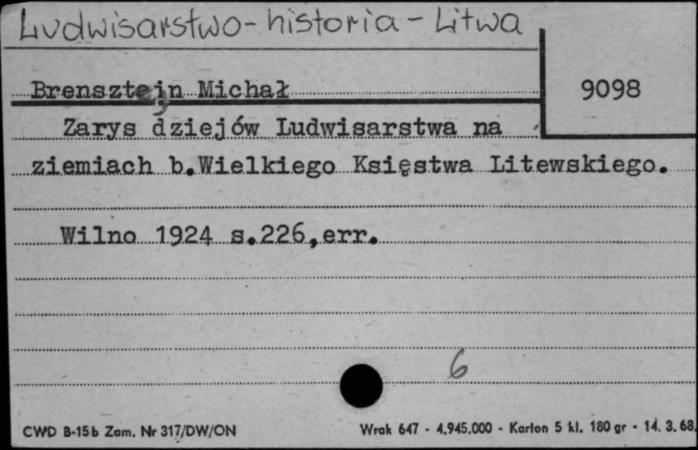 Ludwisarstwo - historia - Litwa
Brensztejn Michał
9098
Zarys dziejów Ludwisarstwa na
ziemiach b.Wielkiego Księstwa Litewskiego.
Wilno 1924 s.226,err.
6
CWD B-15b Zam. Nr 317/DW/ON
Wrak 647 - 4.945.000 - Karton 5 kl. 180 gr - 14. 3. 68.